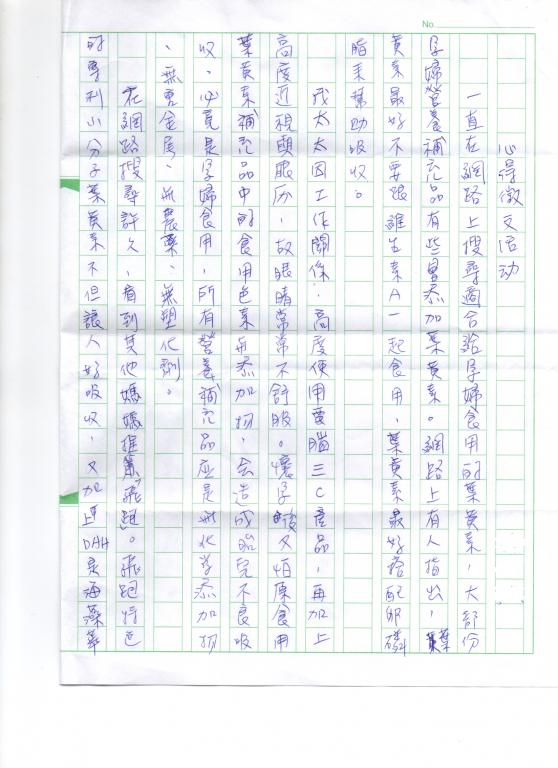 No.
心得徵文活动
一直在網路上搜尋適合給孕婦食用的葉黃素，大部份
孕婦營養補充品有些會添加葉黃素。網路上有人指出，葉
黃素最好不要跟維生素A一起食用，葉黃素最好搭配卵磷
脂來幫助吸收。
我太太因工作關係，高度使用電腦三C產品，再加上
高度近視頭眼历，故眼睛常常不舒服。懷孕後又怕原食用
葉黃素補充品中的食用色素与添加物，会造成胎兒不良吸
收，必竟是孕婦食用，所有營養補充品应是無化学添加物
、無重金屬、無農藥、無塑化劑。
在網路搜尋許久，看到其他媽媽推薦「飛跑」。飛跑特色
的專利小分子葉黃素不但讓人好吸收，又加上DAH是海藻萃